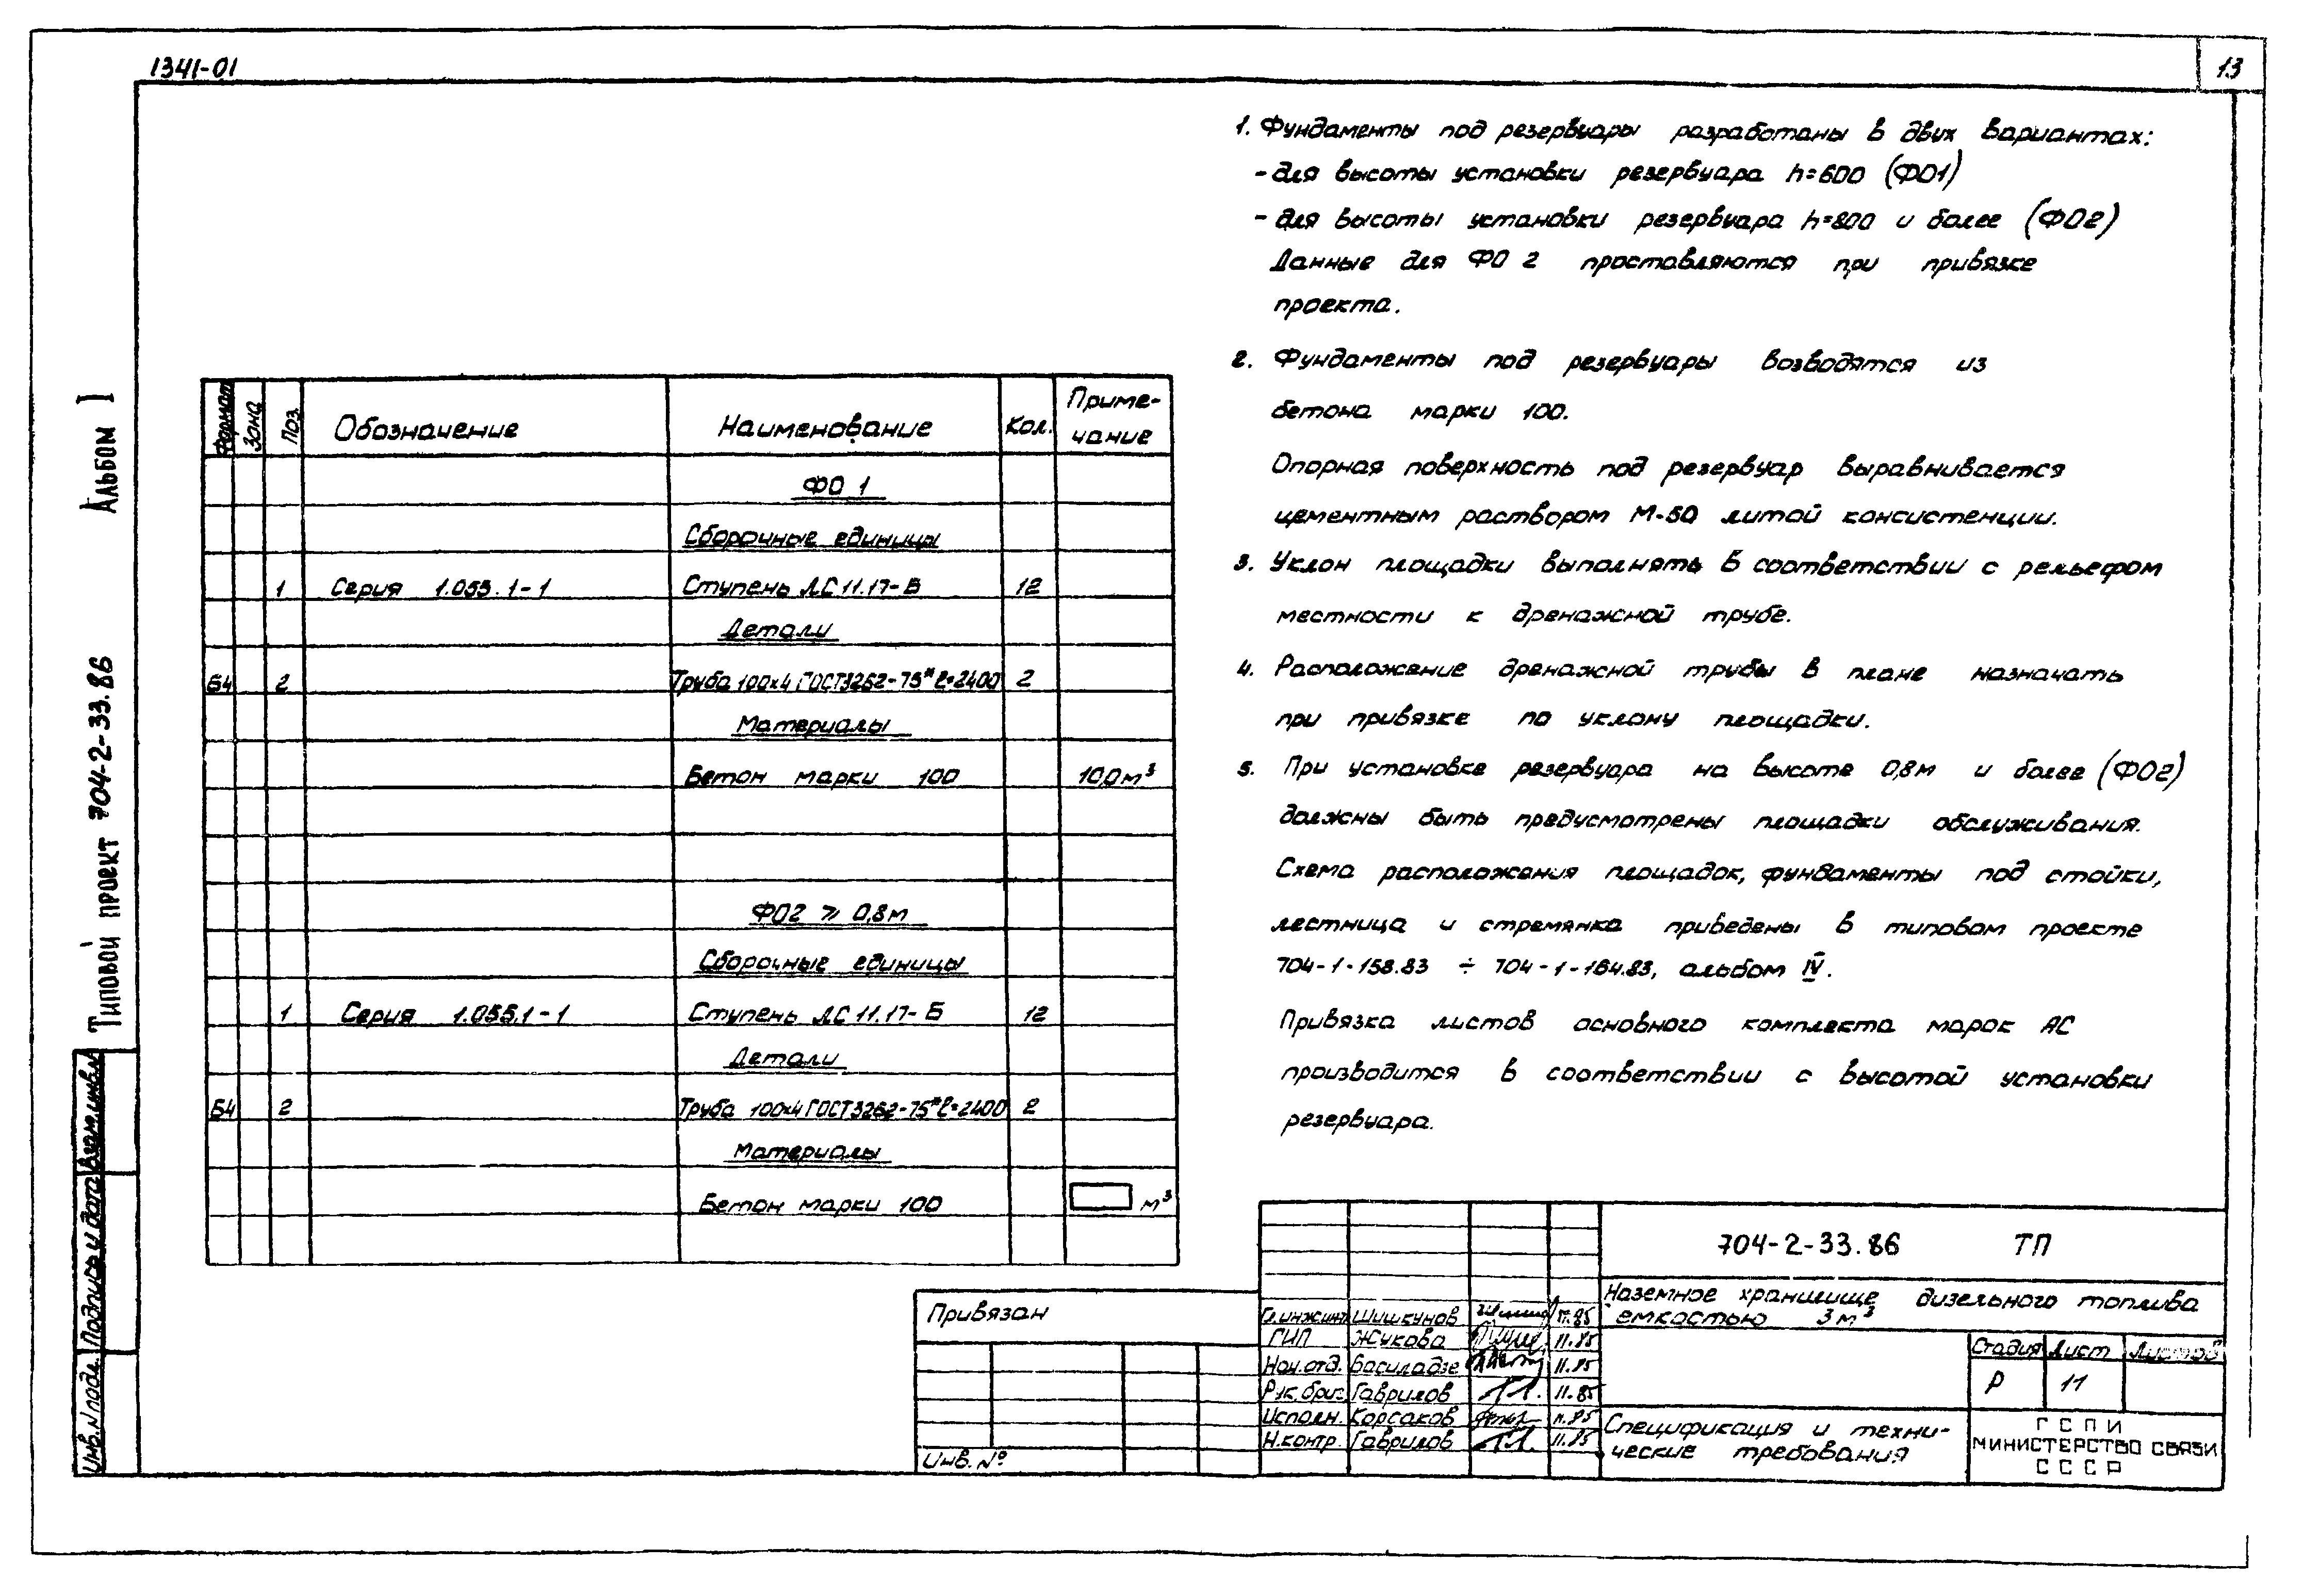 1341-01
13
Альбом I
Типовой проект 704-2-33.86
Инв.N подл. Подпись и дата Взам.инв.N
Формат Зона Поз. Обозначение Наименование Кол. Приме-
чание
ФО 1
Сборочные единицы
1 Серия 1.055.1-1 Ступень ЛС 11.17-Б 12
Детали
Б4 2 Труба 100х4 ГОСТ3262-75* ℓ=2400 2
Материалы
Бетон марки 100 10,0м³
ФО2 ⩾ 0,8м
Сборочные единицы
1 Серия 1.055.1-1 Ступень ЛС 11.17-Б 12
Детали
Б4 2 Труба 100х4 ГОСТ3262-75* ℓ=2400 2
Материалы
Бетон марки 100 м³
1. Фундаменты под резервуары разработаны в двух вариантах:
- для высоты установки резервуара h=600 (ФО1)
- для высоты установки резервуара h=800 и более (ФО2)
Данные для ФО 2 проставляются при привязке
проекта.
2. Фундаменты под резервуары возводятся из
бетона марки 100.
Опорная поверхность под резервуар выравнивается
цементным раствором М-50 литой консистенции.
3. Уклон площадки выполнять в соответствии с рельефом
местности к дренажной трубе.
4. Расположение дренажной трубы в плане назначать
при привязке по уклону площадки.
5. При установке резервуара на высоте 0,8м и более (ФО2)
должны быть предусмотрены площадки обслуживания.
Схема расположения площадок, фундаменты под стойки,
лестница и стремянка приведены в типовом проекте
704-1-158.83 ÷ 704-1-164.83, альбом IV.
Привязка листов основного комплекта марок АС
производится в соответствии с высотой установки
резервуара.
Привязан
Инв. №
704-2-33.86 ТП
Наземное хранилище дизельного топлива
емкостью 3м³
Гл.инж.инст Шишкунов 11.85
ГИП Жукова 11.85
Нач.отд. Басиладзе 11.85
Рук.бриг. Гаврилов 11.85
Исполн. Корсаков 11.85
Н.контр. Гаврилов 11.85
Стадия Лист Листов
Р 11
Спецификация и техни-
ческие требования
ГСПИ
МИНИСТЕРСТВО СВЯЗИ
СССР